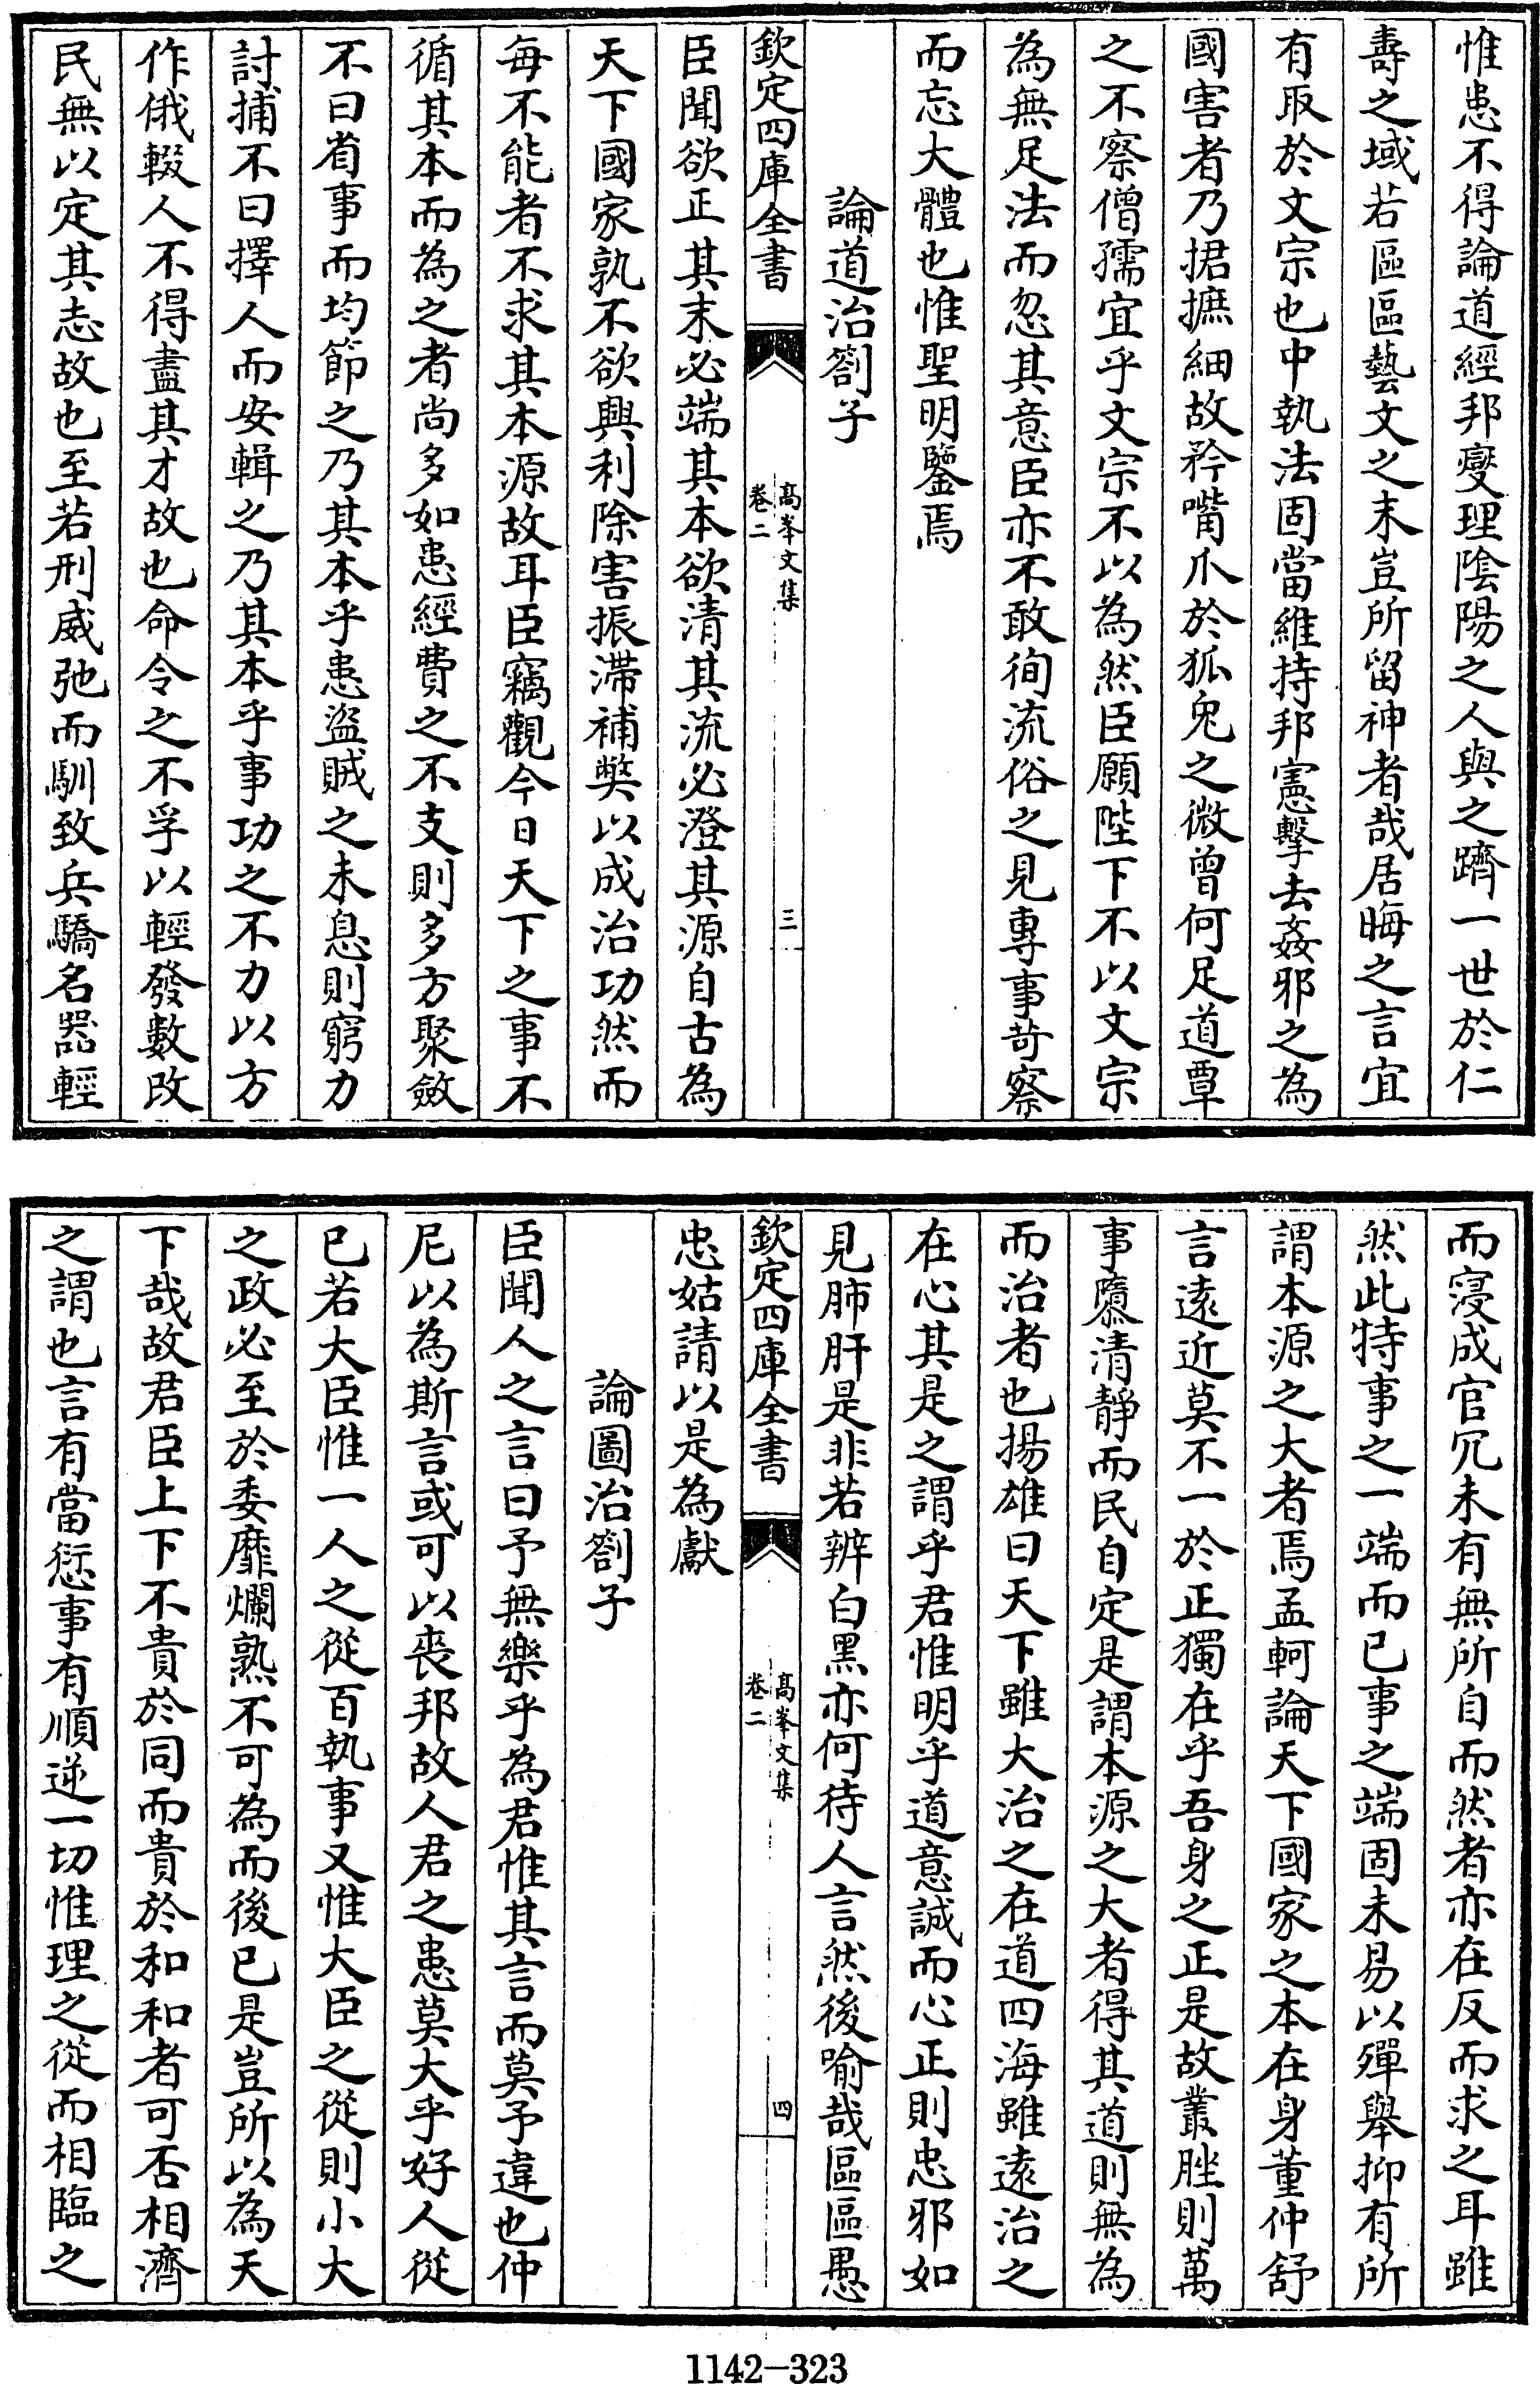 惟患不得論道經邦燮理隂陽之人與之躋一世於仁
壽之域若區區藝文之末豈所留神者哉居晦之言宜
有取於文宗也中執法固當維持邦憲擊去姦邪之為
國害者乃捃摭細故矜嘴爪於狐兔之微曾何足道覃
之不察僧孺宜乎文宗不以為然臣願陛下不以文宗
為無足法而忽其意臣亦不敢徇流俗之見專事苛察
而忘大體也惟聖明鑒焉
論道治劄子
欽定四庫全書
高峯文集
卷二
三
臣聞欲正其末必端其本欲清其流必澄其源自古為
天下國家孰不欲興利除害振滯補獘以成治功然而
每不能者不求其本源故耳臣竊觀今日天下之事不
循其本而為之者尚多如患經費之不支則多方聚斂
不曰省事而均節之乃其本乎患盜賊之未息則窮力
討捕不曰擇人而安輯之乃其本乎事功之不力以方
作俄輟人不得盡其才故也命令之不孚以輕發數改
民無以定其志故也至若刑威弛而馴致兵驕名器輕
而寖成官冗未有無所自而然者亦在反而求之耳雖
然此特事之一端而已事之端固未易以殫舉抑有所
謂本源之大者焉孟軻論天下國家之本在身董仲舒
言遠近莫不一於正獨在乎吾身之正是故叢脞則萬
事隳清靜而民自定是謂本源之大者得其道則無為
而治者也揚雄曰天下雖大治之在道四海雖遠治之
在心其是之謂乎君惟明乎道意誠而心正則忠邪如
見肺肝是非若辨白黑亦何待人言然後喻哉區區愚
欽定四庫全書
高峯文集
卷二
四
忠姑請以是為獻
論圖治劄子
臣聞人之言曰予無樂乎為君惟其言而莫予違也仲
尼以為斯言或可以喪邦故人君之患莫大乎好人從
已若大臣惟一人之從百執事又惟大臣之從則小大
之政必至於委靡爛熟不可為而後已是豈所以為天
下哉故君臣上下不貴於同而貴於和和者可否相濟
之謂也言有當愆事有順逆一切惟理之從而相臨之
1142-323